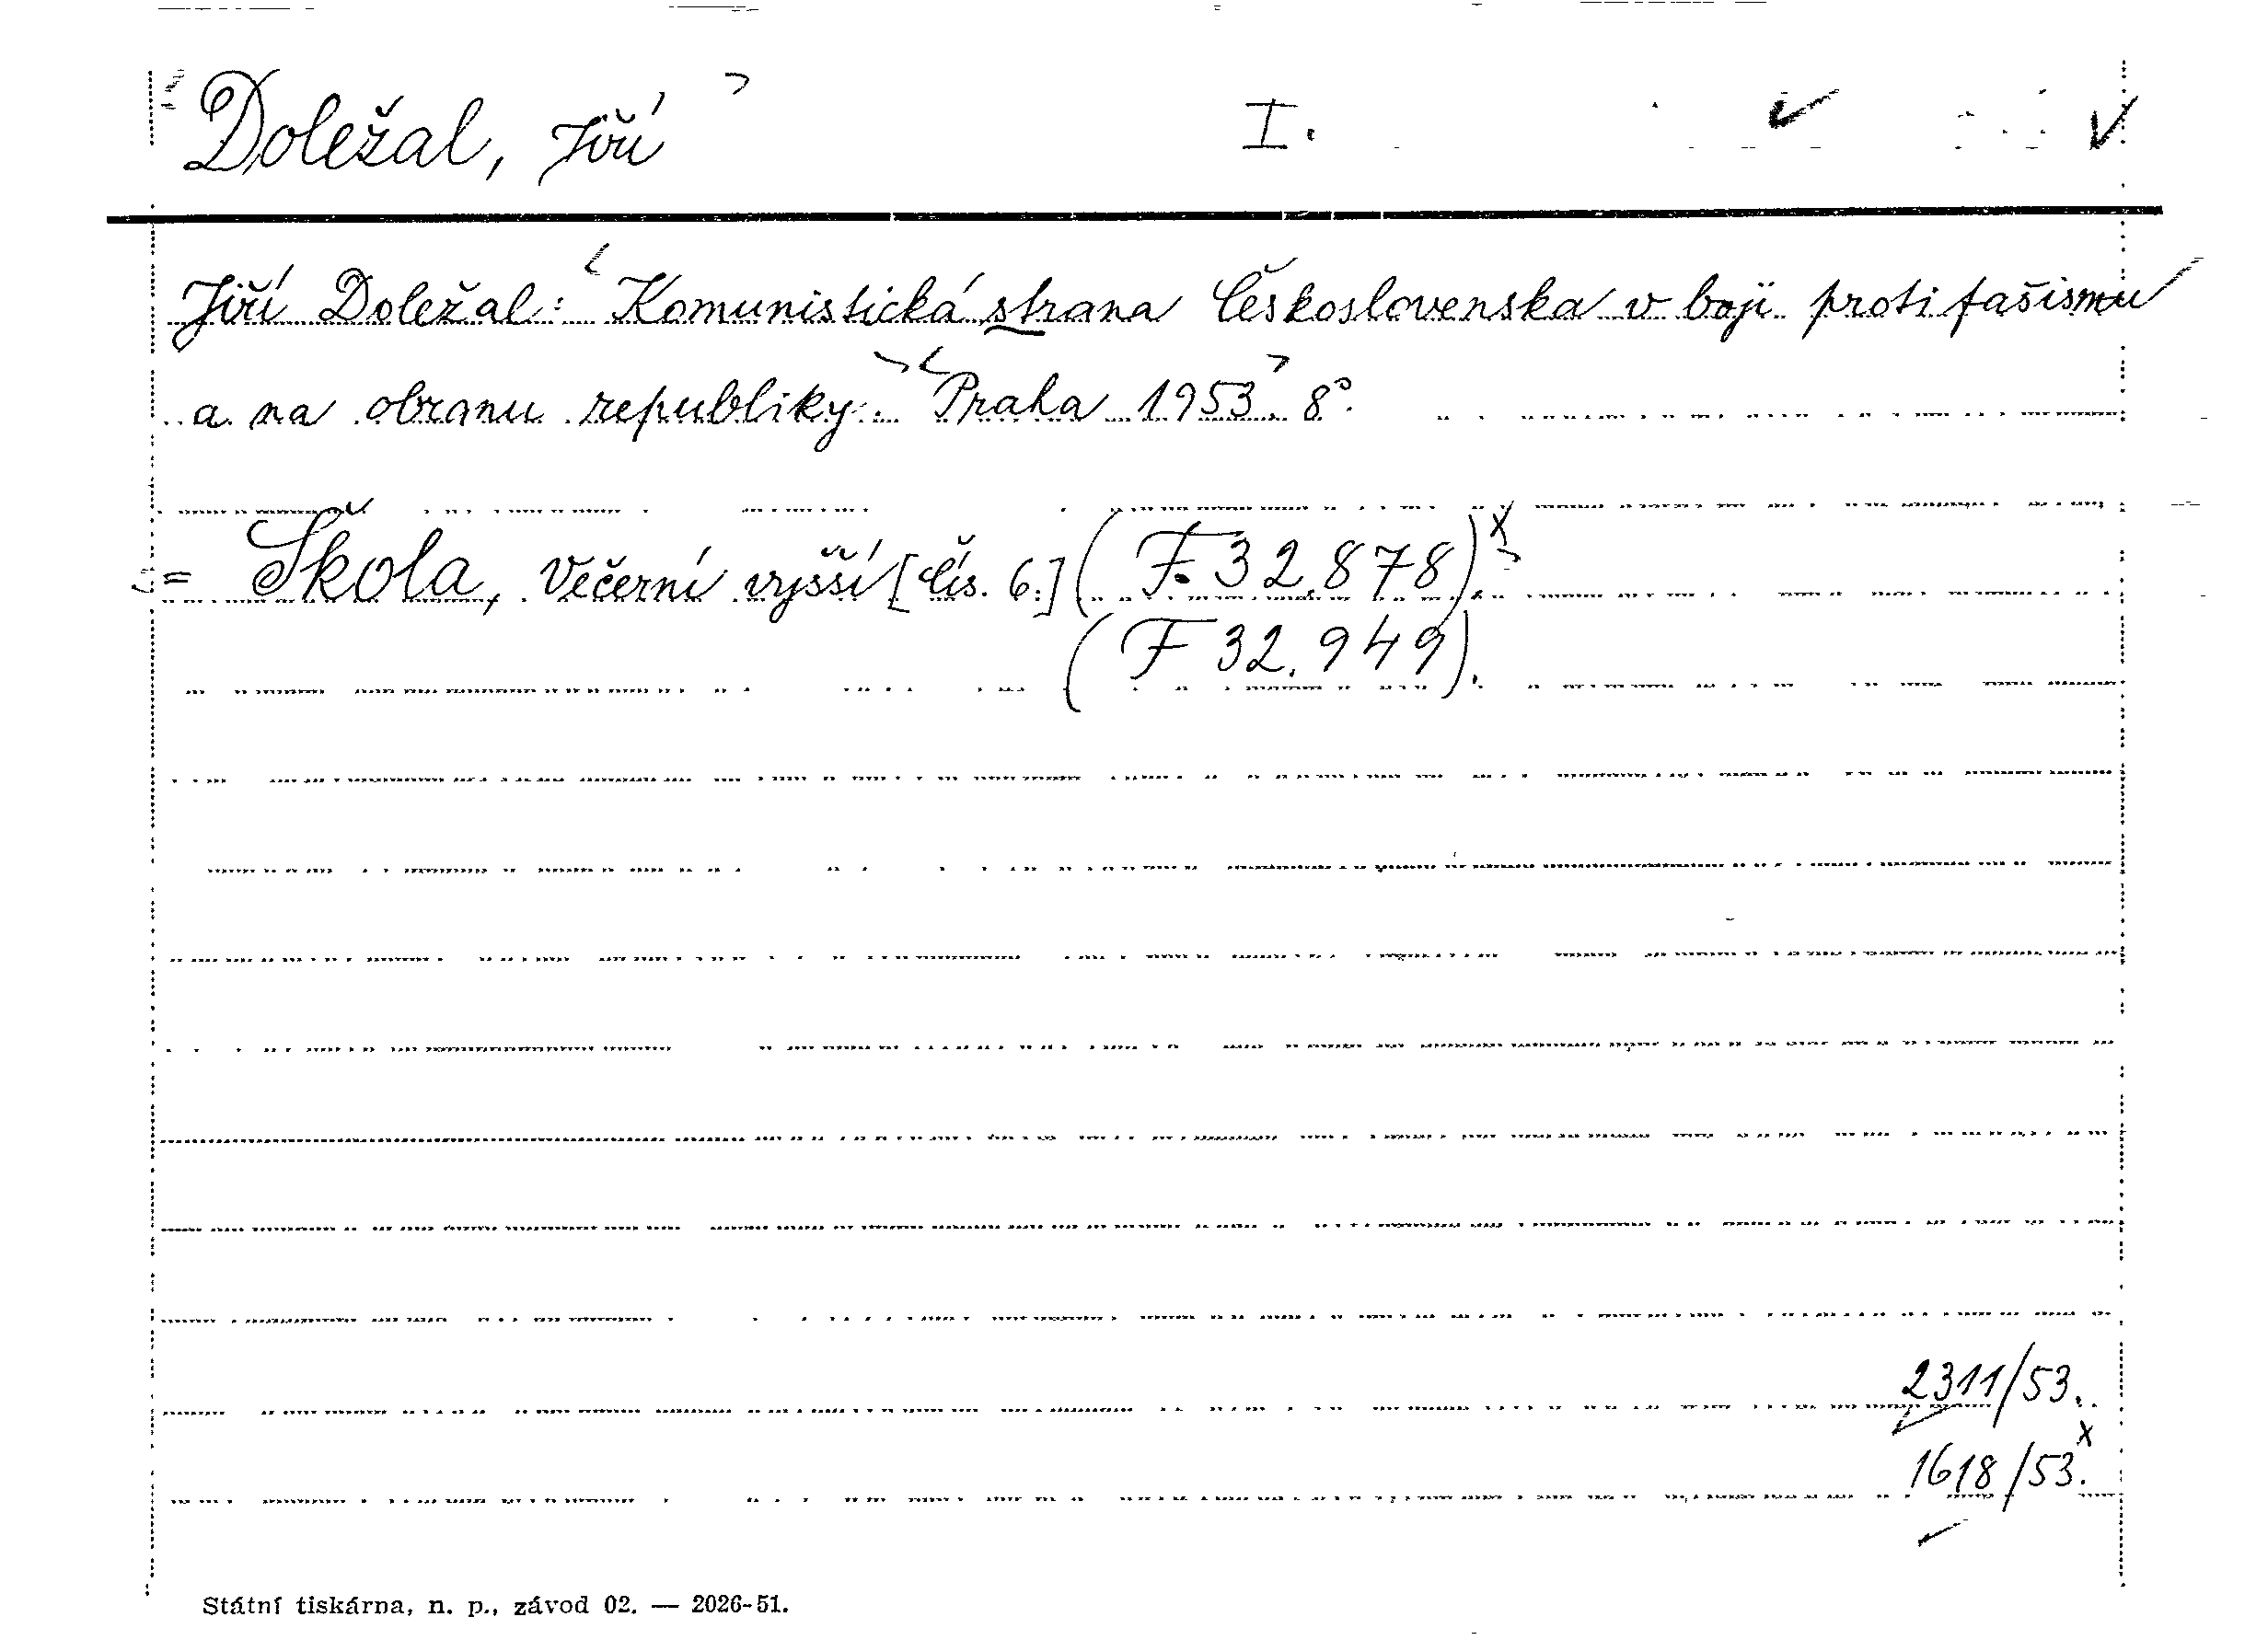 Doležal, Jiří I.
Jiří Doležal: Komunistická strana Československa v boji proti fašismu
a na obranu republiky. Praha 1953. 8°.
= Škola, Večerní vyšší [čís. 6.] (F 32.878).x
(F 32.949).
2311/53.
1618/53.x
Státní tiskárna, n. p., závod 02. — 2026-51.